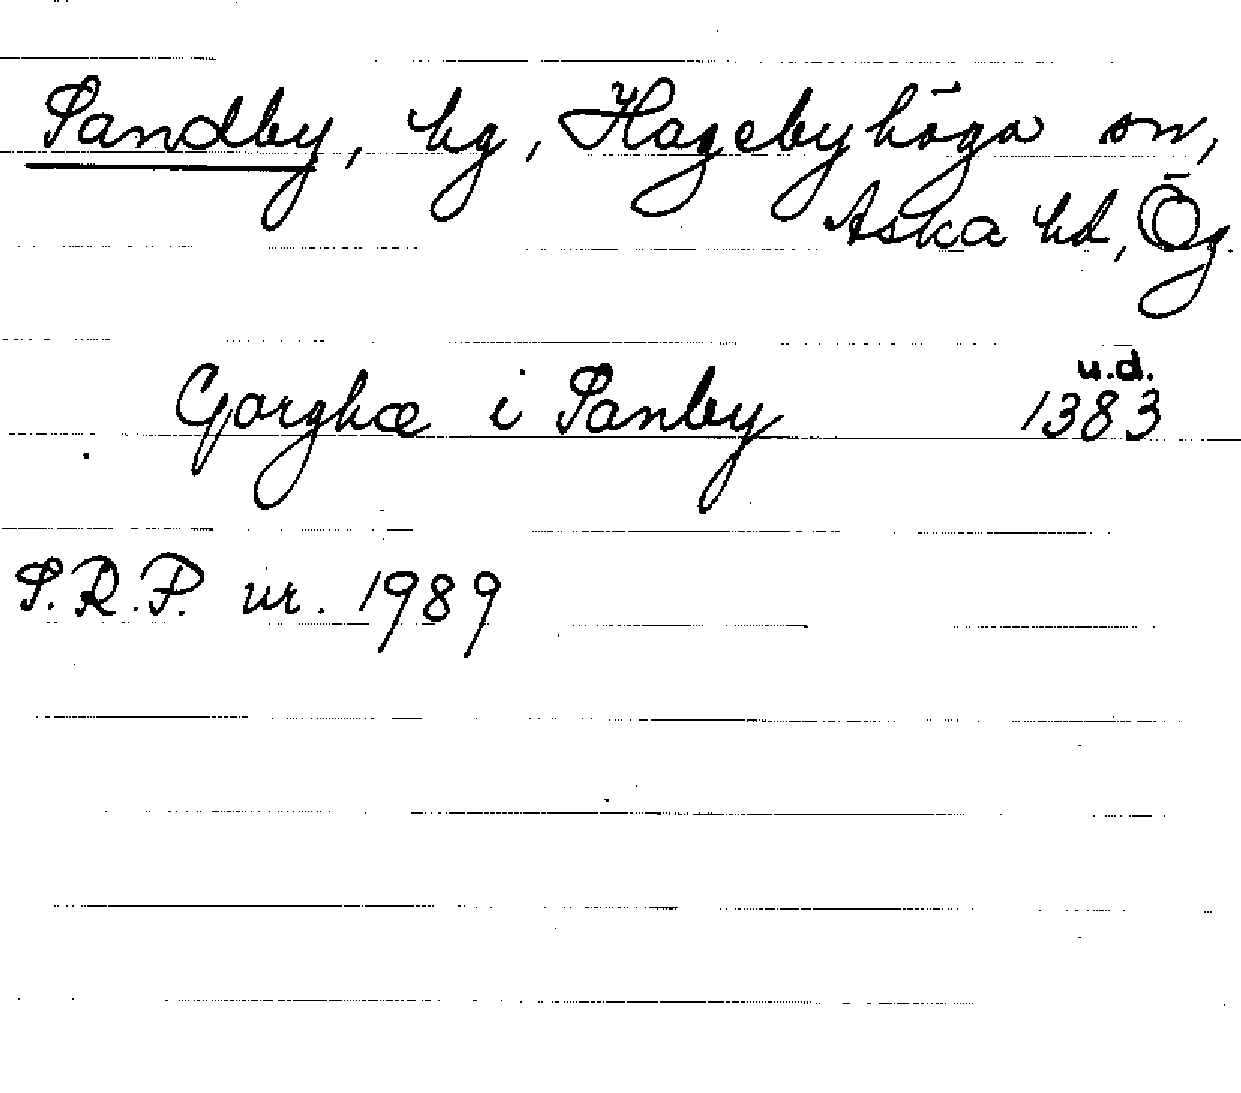 Sandby, hg, Hagebyhöga sn,
Aska hd, Ög.
u.d.
Gorghæ i Sanby 1383
S.R.P. nr. 1989